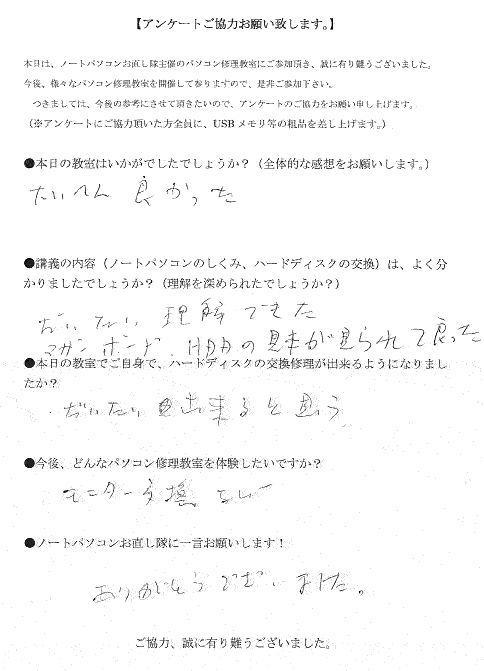 【アンケートご協力お願い致します。】
本日は、ノートパソコンお直し隊主催のパソコン修理教室にご参加頂き、誠に有り難うございました。
今後、様々なパソコン修理教室を開催して参りますので、是非ご参加下さい。
つきましては、今後の参考にさせて頂きたいので、アンケートのご協力をお願い申し上げます。
（※アンケートにご協力頂いた方全員に、USBメモリ等の粗品を差し上げます。）
●本日の教室はいかがでしたでしょうか？（全体的な感想をお願いします。）
たいへん 良かった
●講義の内容（ノートパソコンのしくみ、ハードディスクの交換）は、よく分
かりましたでしょうか？（理解を深められたでしょうか？）
だいたい 理解できた
マザーボード、HDDの見本が見られて良かった
●本日の教室でご自身で、ハードディスクの交換修理が出来るようになりまし
たか？
だいたい出来ると思う
●今後、どんなパソコン修理教室を体験したいですか？
モニター交換
●ノートパソコンお直し隊に一言お願いします！
ありがとうございました。
ご協力、誠に有り難うございました。